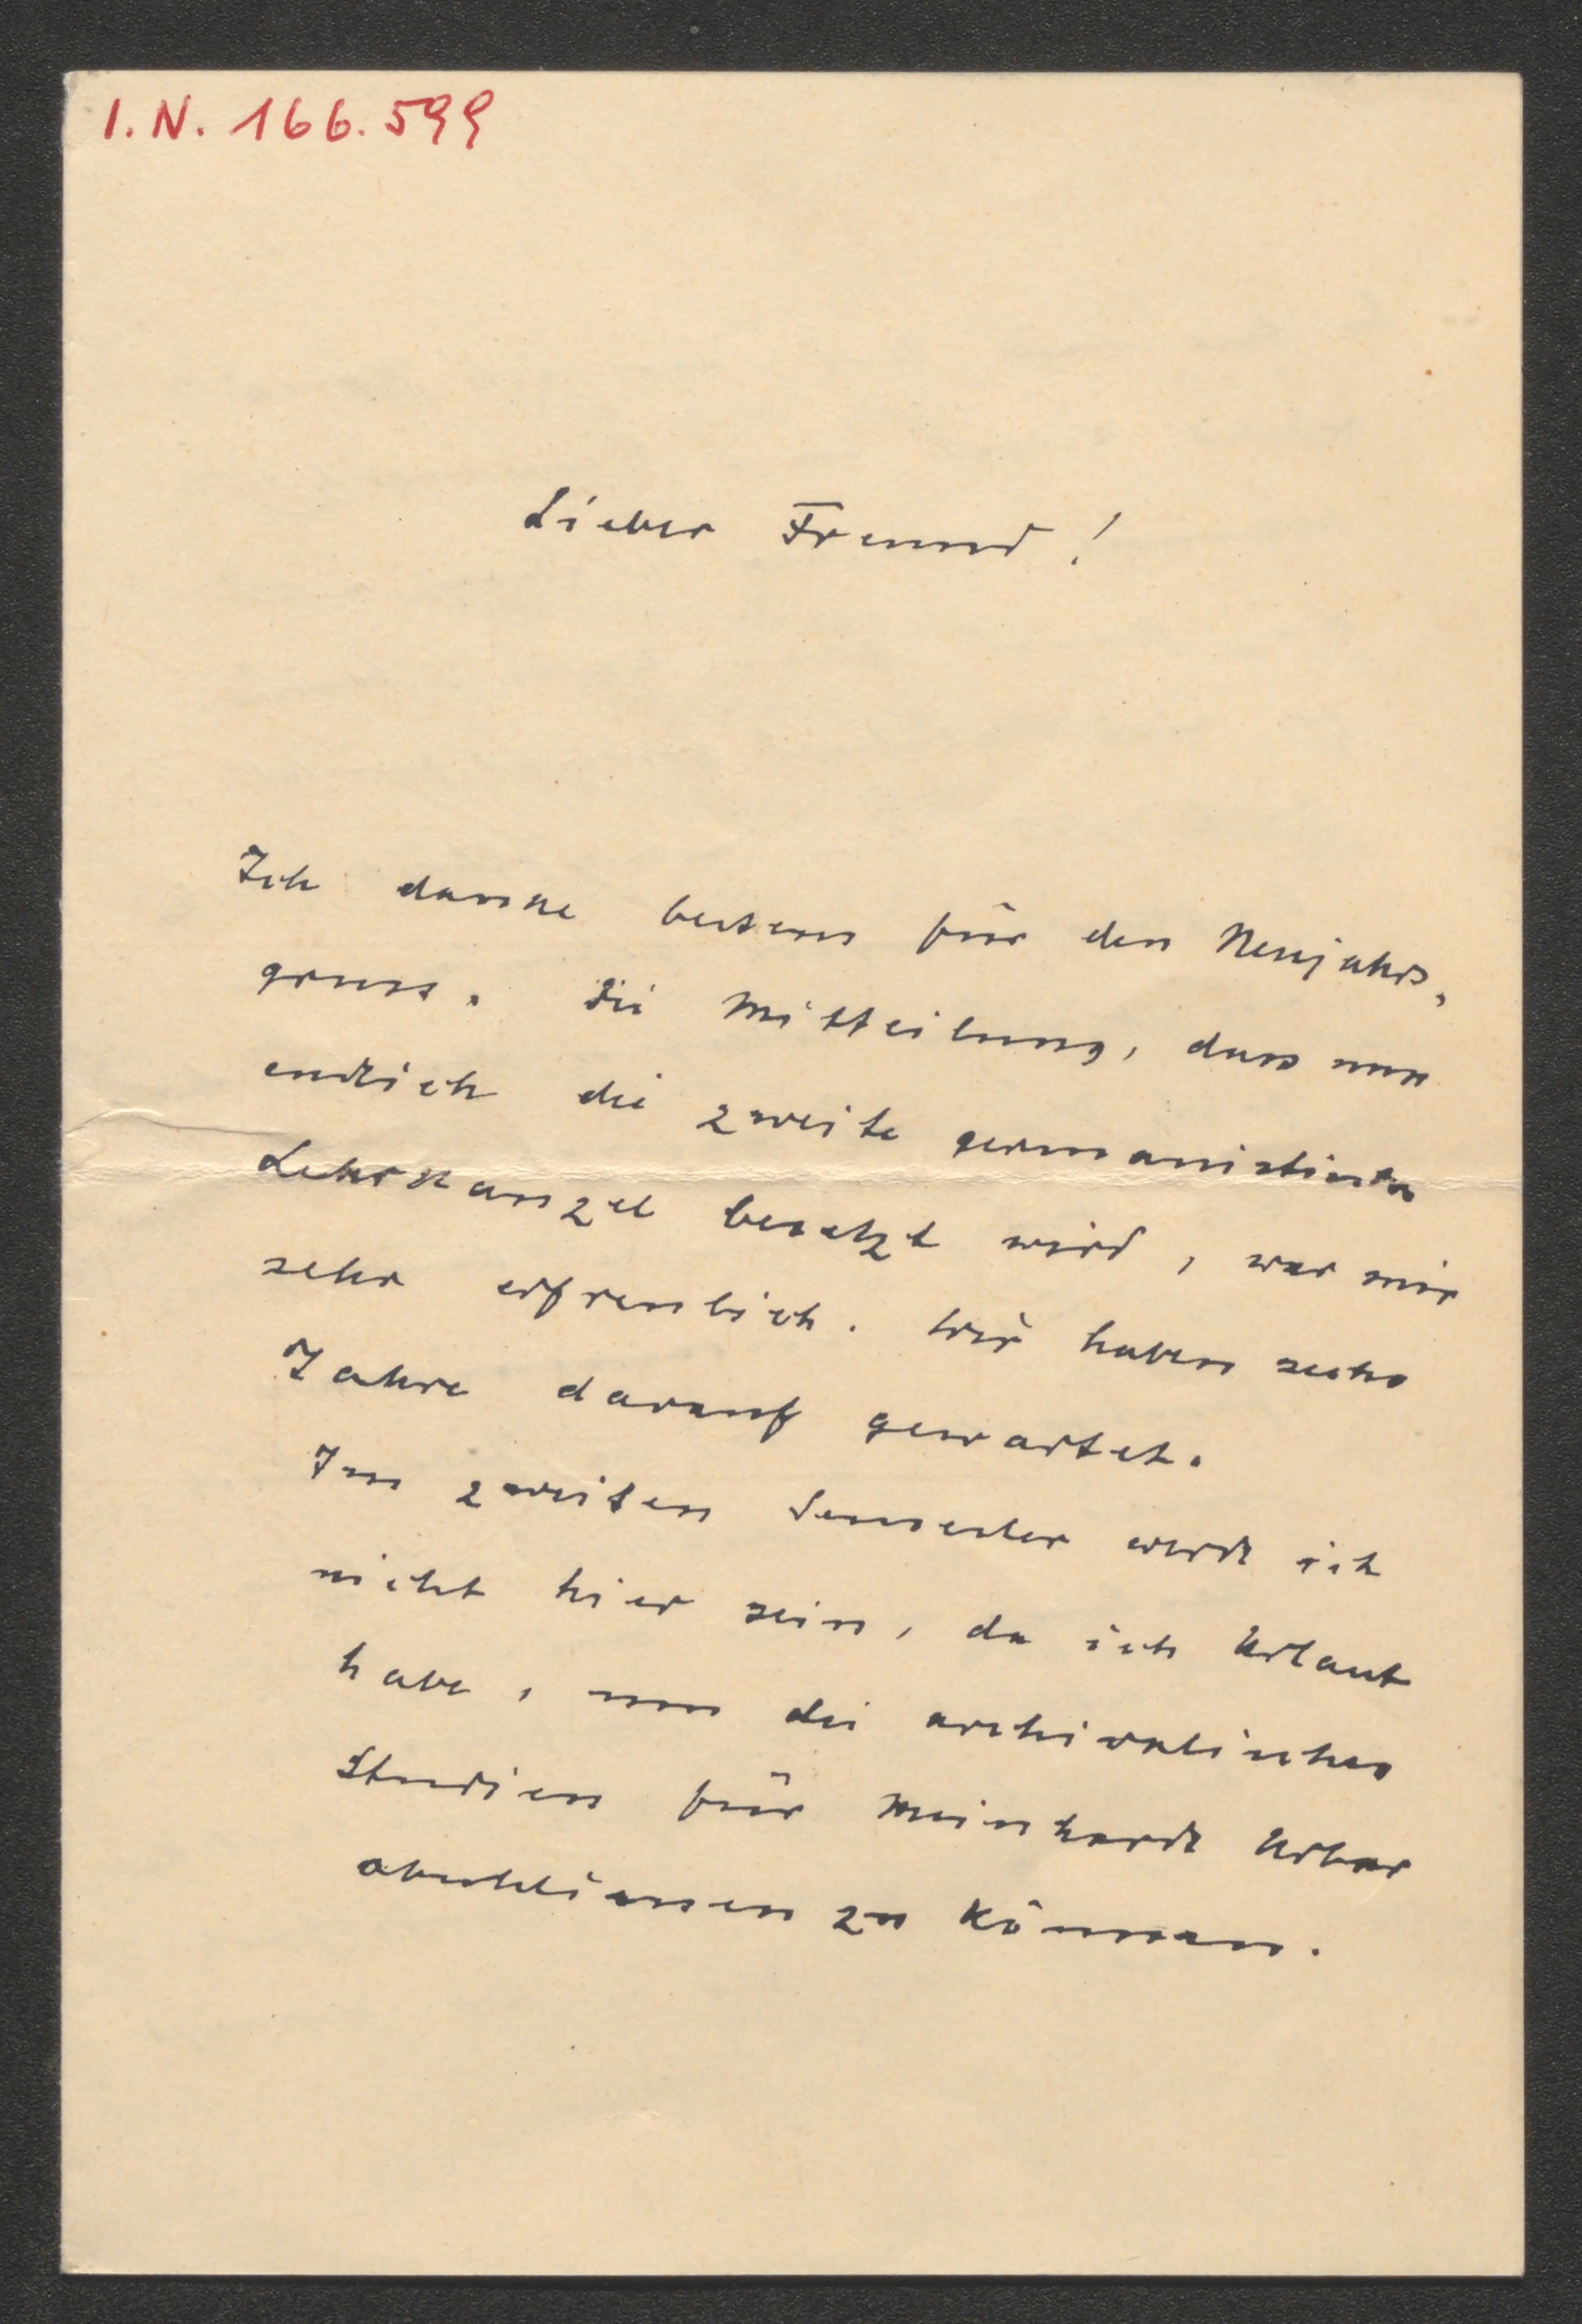 I.N. 166.599
Lieber Freund!
Ich danke bestens für den Neujahrs-
gruss. Die Mitteilung, dass nun
endlich die zweite germanistische
Lehrkanzel besetzt wird, war mir
sehr erfreulich. Wir haben sechs
Jahre darauf gewartet.
Im zweiten Semester werde ich
nicht hier sein, da ich Urlaub
habe, um die archivalischen
Studien für Meinhards Urbar
abschliessen zu können.